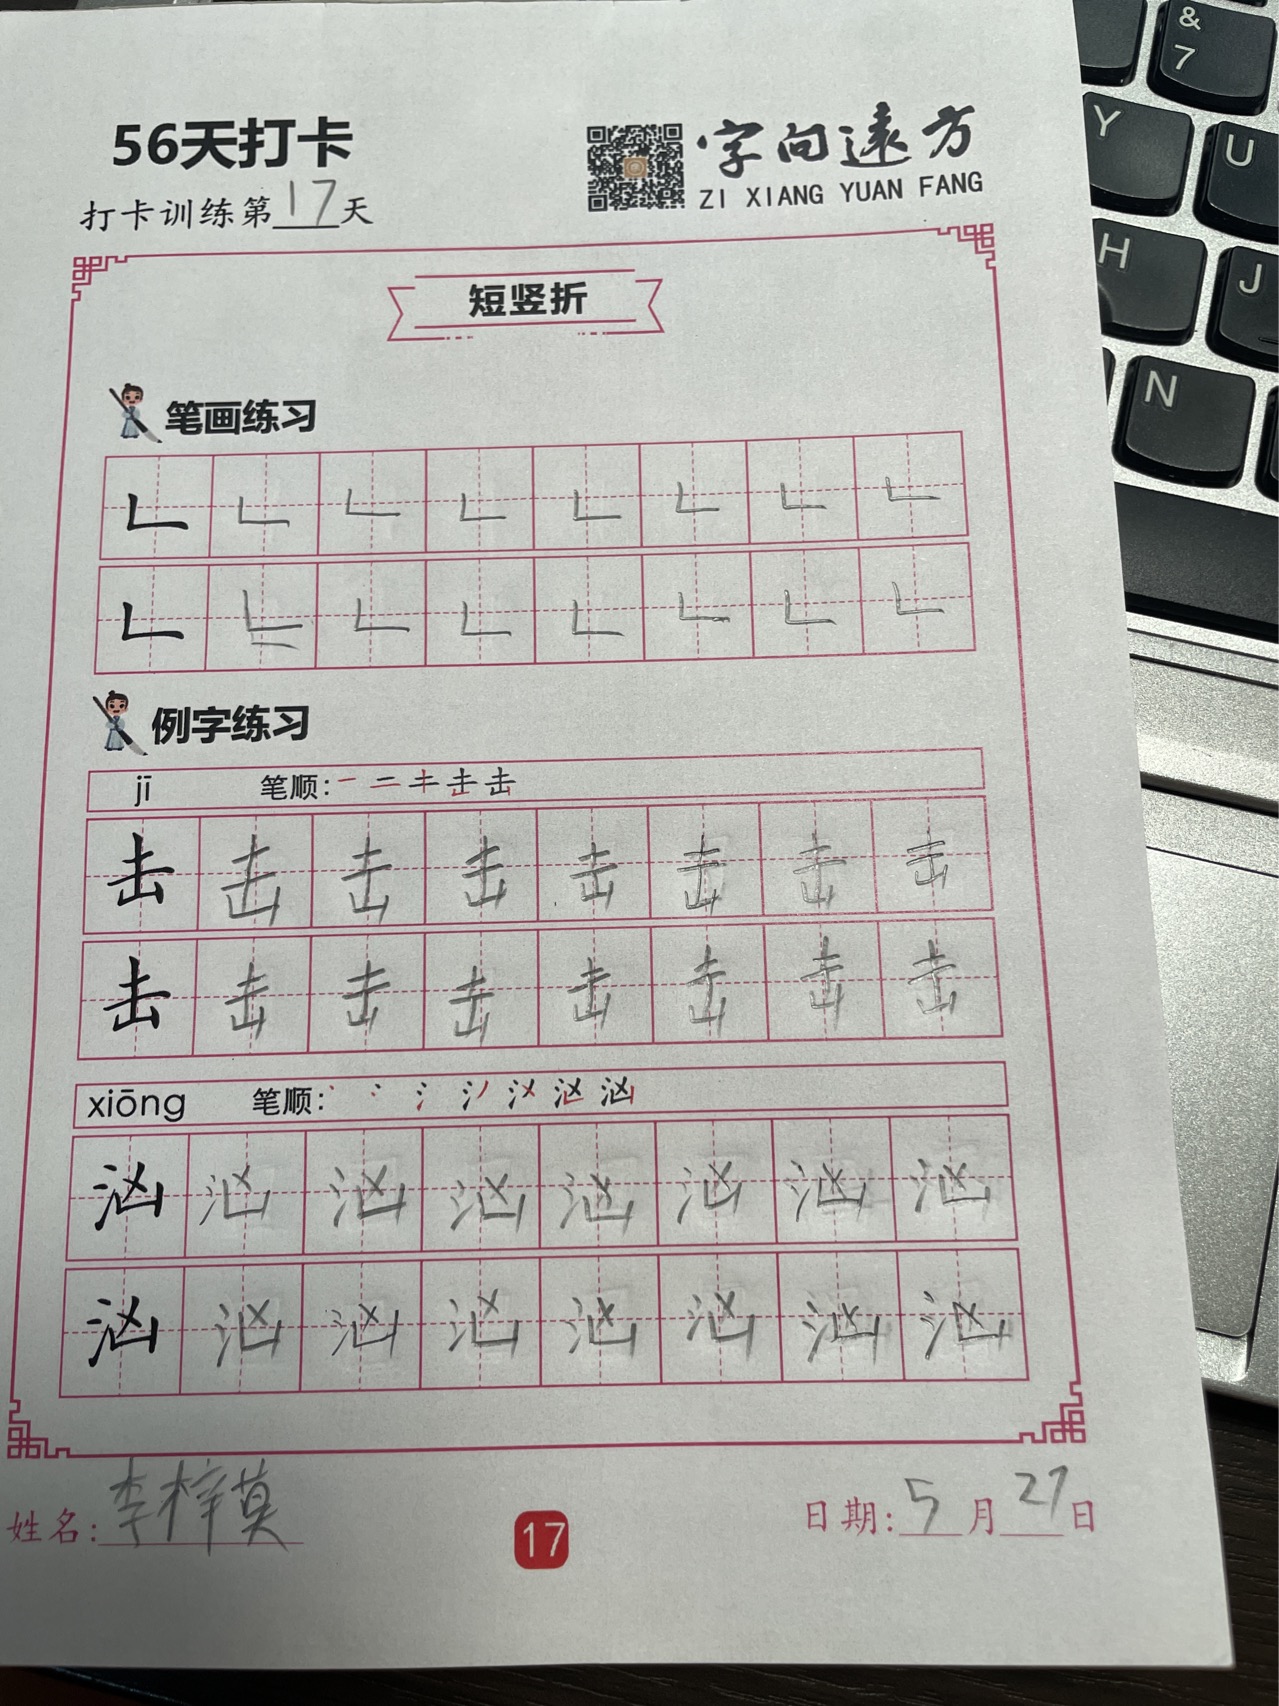 56天打卡
打卡训练第17天
字向远方
ZI XIANG YUAN FANG
短竖折
笔画练习
例字练习
jī 笔顺:
击 击 击 击 击 击 击 击
击 击 击 击 击 击 击 击
xiōng 笔顺:
汹 汹 汹 汹 汹 汹 汹 汹
汹 汹 汹 汹 汹 汹 汹 汹
姓名:李梓莫
17
日期:5月27日
&
7
Y
U
H
J
N